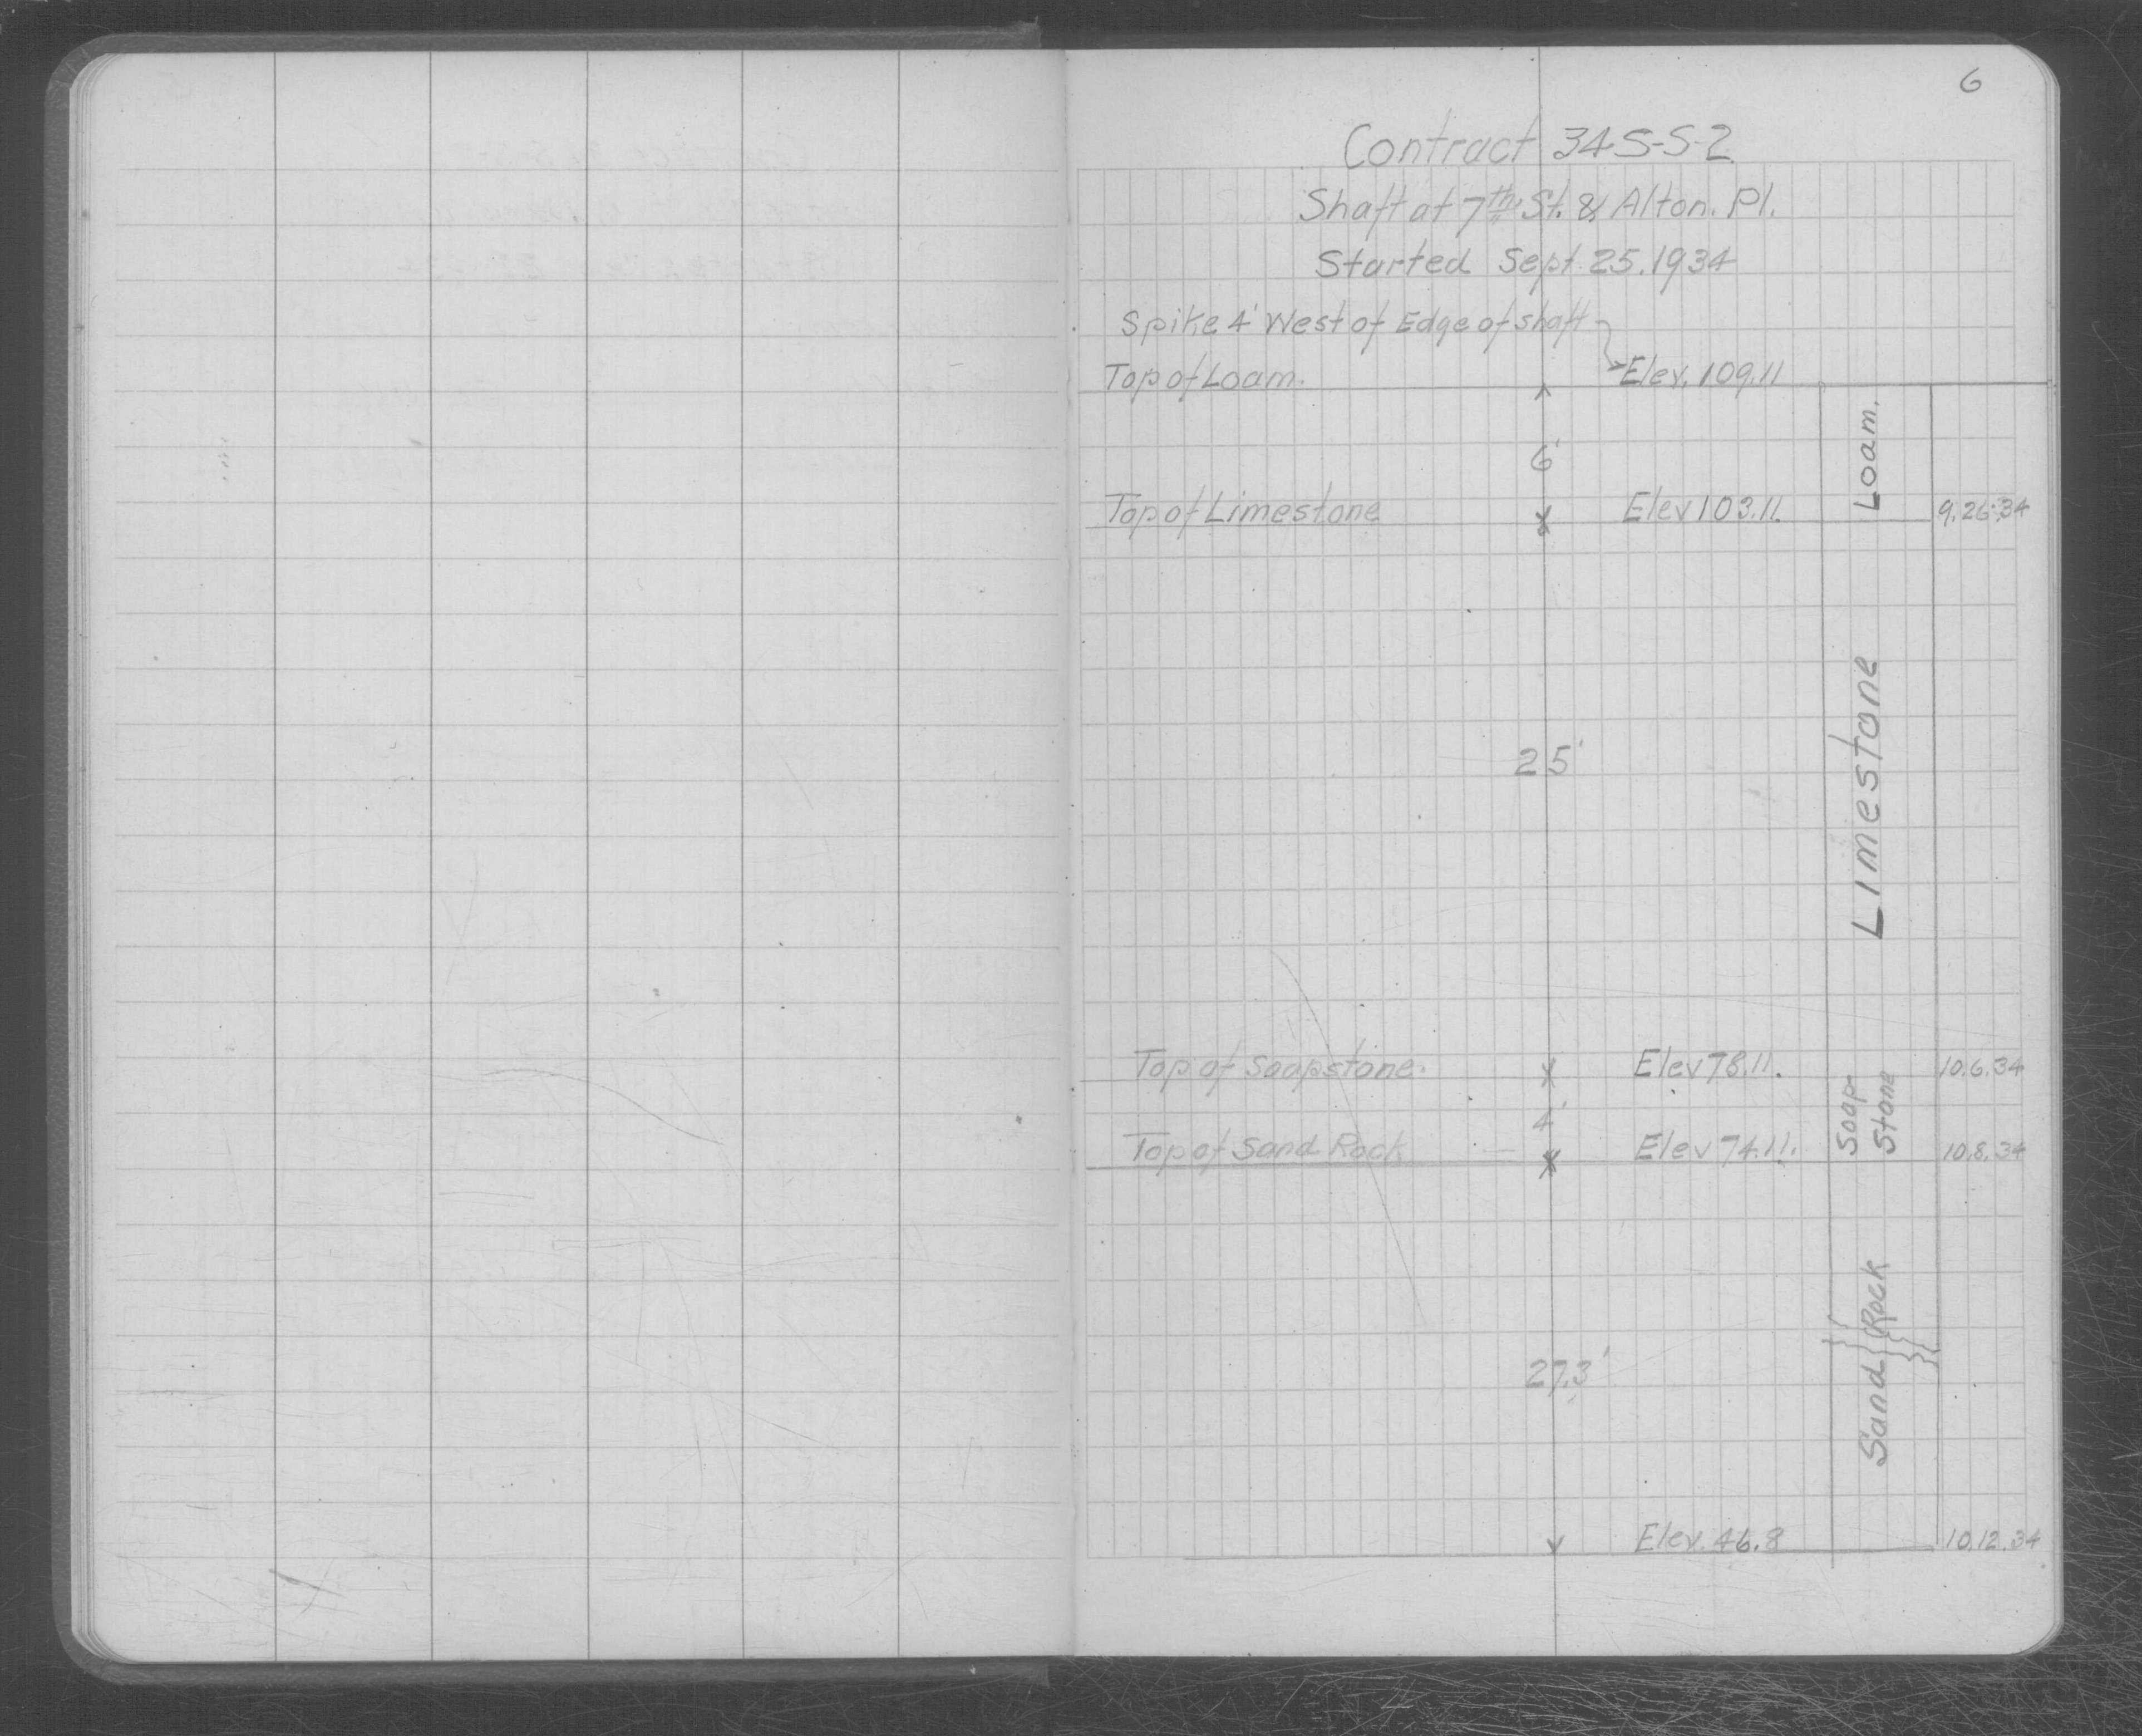 6
Contract 34-S-S-2
Shaft at 7th St. & Alton. Pl.
Started Sept. 25. 1934
Spike 4' West of Edge of shaft
Top of Loam. Elev. 109.11
6'
Loam.
Top of Limestone Elev 103.11. 9.26.34
25'
Limestone
Top of Soapstone. Elev 78.11. 10.6.34
4'
Soap-
Stone
Top of Sand Rock Elev 74.11. 10.8.34
27.3'
Sand Rock
Elev. 46.8 10.12.34